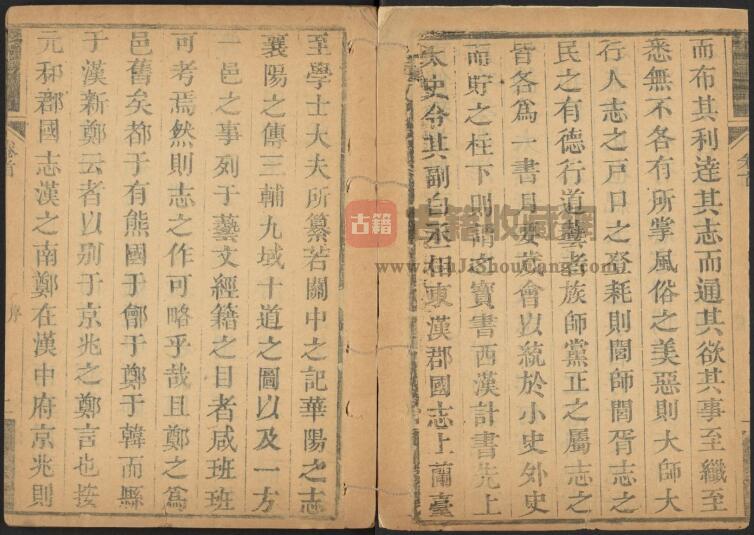 而布其利達其志而通其欲其事至纖至
悉無不各有所掌風俗之美惡則大師大
行人志之戶口之登耗則閭師閭胥志之
民之有德行道藝者族師黨正之屬志之
皆各為一書月要歲會以統於小史外史
而貯之柱下則謂之寶書西漢計書先上
太史令其副白丞相東漢郡國志上蘭臺
至學士大夫所纂若關中之記華陽之志
襄陽之傳三輔九域十道之圖以及一方
一邑之事列于藝文經籍之目者咸班班
可考焉然則志之作可略乎哉且鄭之為
邑舊矣都于有熊國于鄶于鄭于韓而縣
于漢新鄭云者以別于京兆之鄭言也按
元和郡國志漢之南鄭在漢中府京兆則
序
古籍
古籍收藏網
www.GuJiShouCang.com